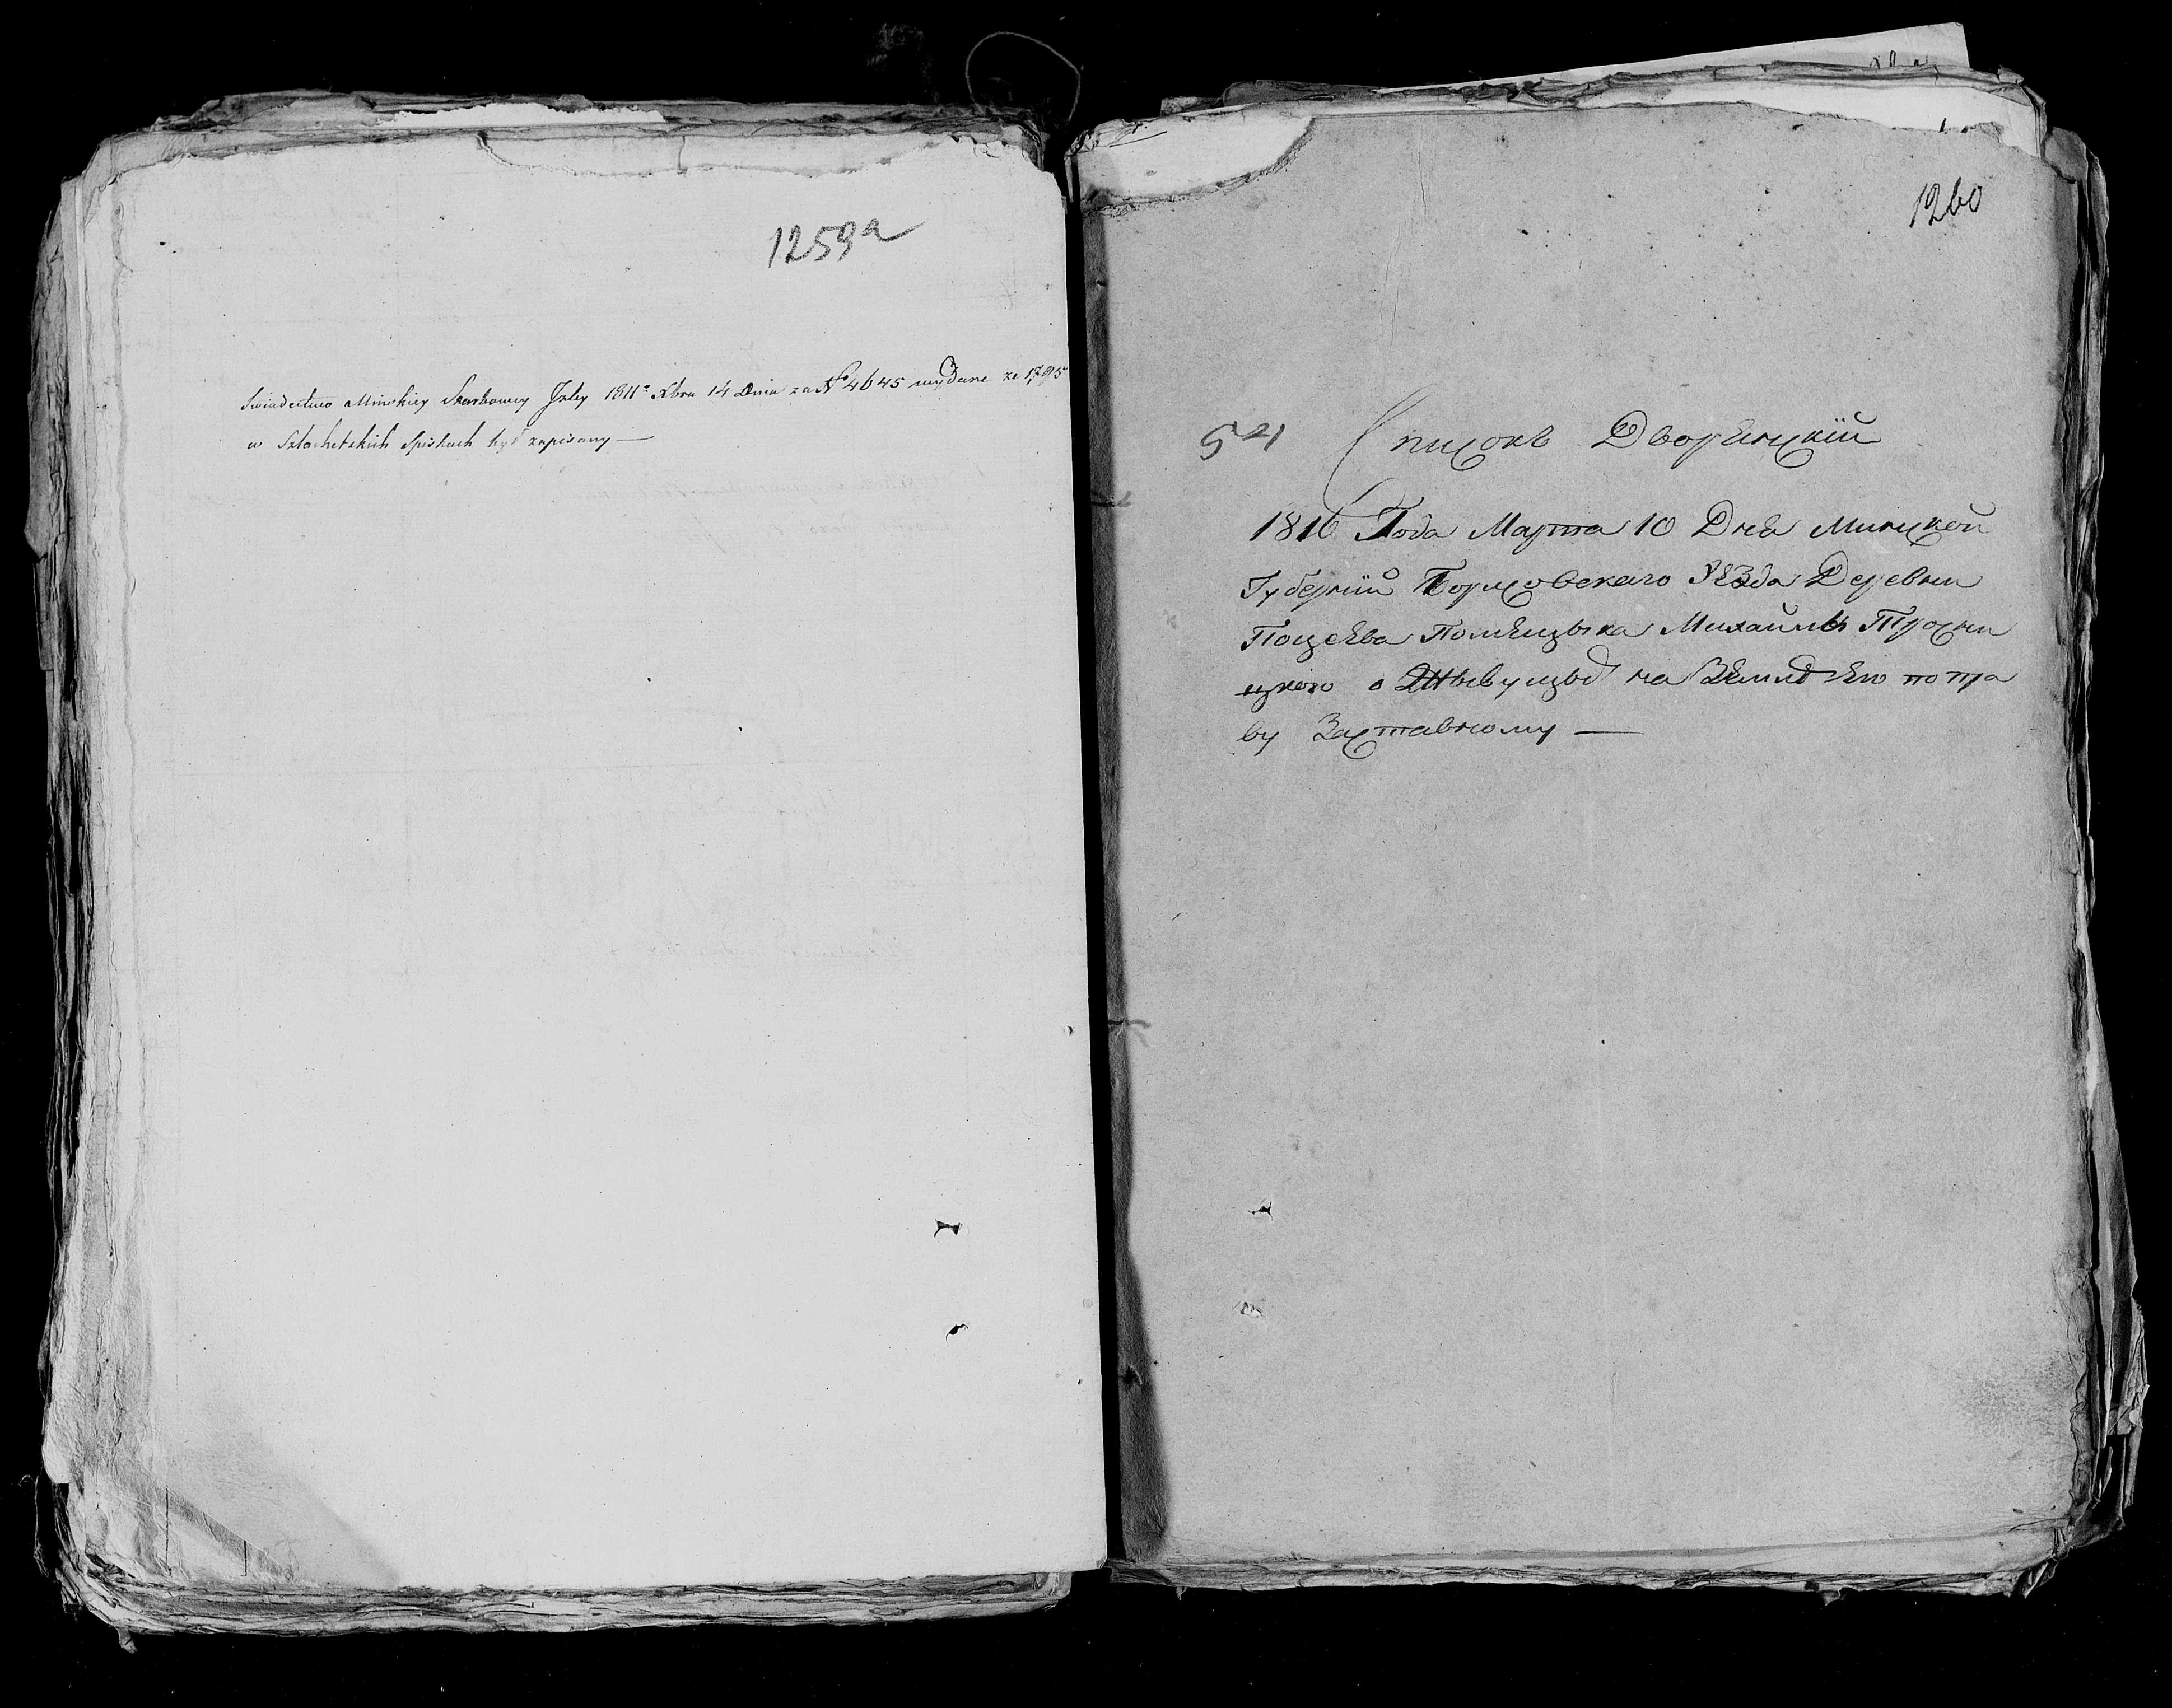 1259a
Swiadectwo Minskiey Skarbowey Izby 1811º Xbra 14 Dnia za Nº 4645 wydane że 1795
w Szlachetskich Spiskach był zapisany —
1260
521
Списокъ Дворѣнскій
1816 Года Марта 10 Днѣ Минской
Губерніи Борисовскаго Уѣзда Деревни
Помѣщыка Михайлы
на Земле Его по пра
ву Заставному —